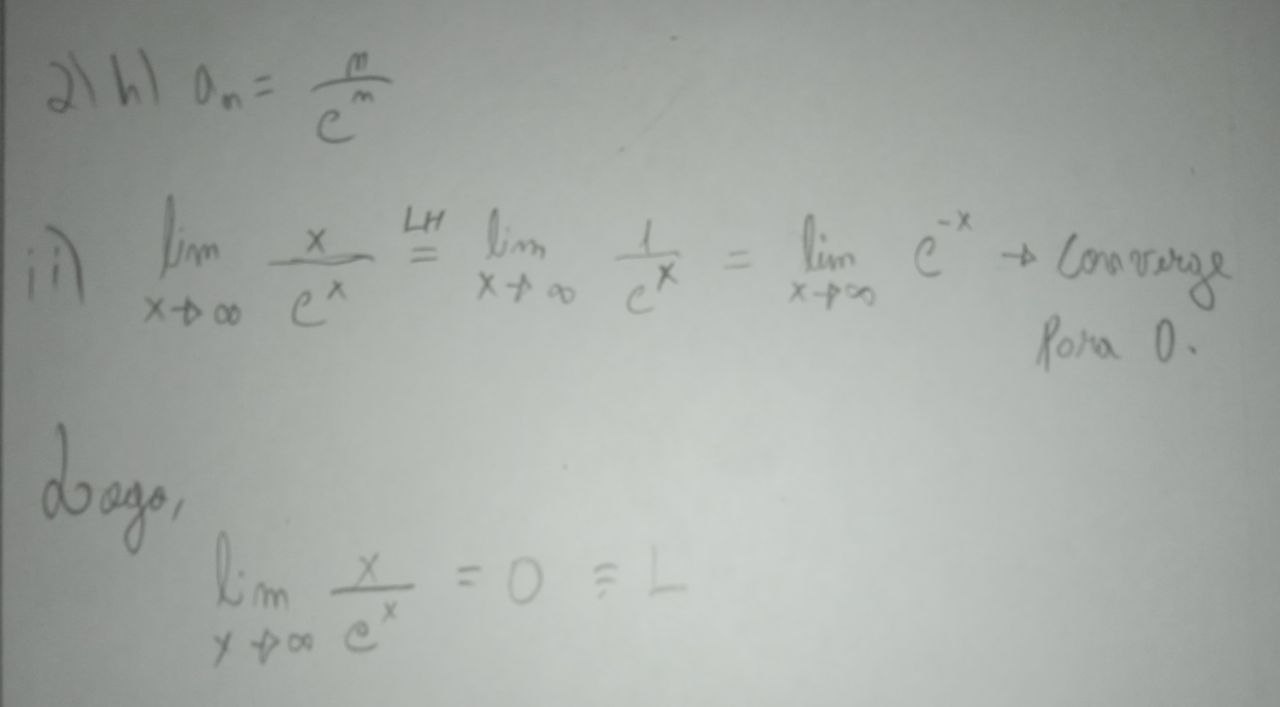 2) h) aₙ = n/eⁿ
ii) lim x→∞ x/eˣ =ᴸᴴ lim x→∞ 1/eˣ = lim x→∞ e⁻ˣ → Converge
Para 0.
Logo,
lim x→∞ x/eˣ = 0 = L